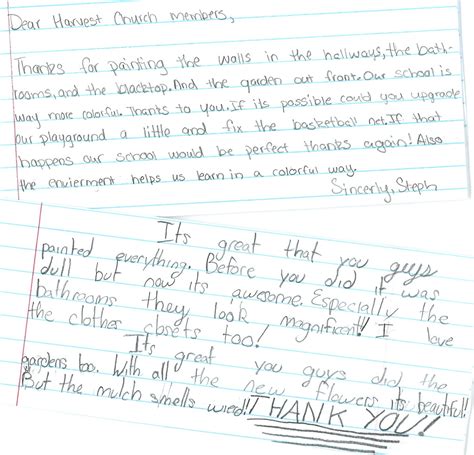 Dear Harvest Church members,
Thanks for painting the walls in the hallways, the bath-
rooms, and the blacktop. And the garden out front. Our school is
way more colorful. Thanks to you. If its possible could you upgrade
our playground a little and fix the basketball net. If that
happens our school would be perfect thanks again! Also
the envierment helps us learn in a colorful way.
Sincerly, Steph
Its great that you guys
painted everything. Before you did it was
dull but now its awesome. Especially the
bathrooms they look magnificent!! I love
the clothes closets too!
Its great you guys did the
gardens too. With all the new flowers its beautiful!
But the mulch smells wied!! THANK YOU!